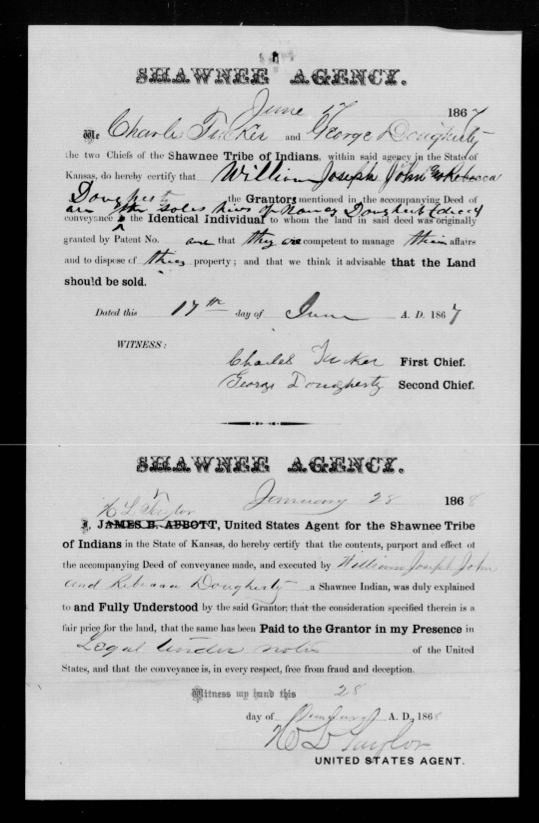 SHAWNEE AGENCY.
June 17 1867
We Charles Tucker and George Dougherty
the two Chiefs of the Shawnee Tribe of Indians, within said agency in the State of
Kansas, do hereby certify that William Joseph John & Rebecca
Dougherty the Grantors mentioned in the accompanying Deed of
are the soles heirs of Nancy Dougherty (deced
conveyance is the Identical Individual to whom the land in said deed was originally
granted by Patent No. and that they are competent to manage their affairs
and to dispose of their property; and that we think it advisable that the Land
should be sold.
Dated this 17th day of June A. D. 1867
WITNESS:
Charles Tucker First Chief.
George Dougherty Second Chief.
SHAWNEE AGENCY.
January 28 1868
H L Taylor
I, JAMES B. ABBOTT, United States Agent for the Shawnee Tribe
of Indians in the State of Kansas, do hereby certify that the contents, purport and effect of
the accompanying Deed of conveyance made, and executed by William Joseph John
and Rebecca Dougherty a Shawnee Indian, was duly explained
to and Fully Understood by the said Grantor; that the consideration specified therein is a
fair price for the land, that the same has been Paid to the Grantor in my Presence in
Legal tender notes of the United
States, and that the conveyance is, in every respect, free from fraud and deception.
Witness my hand this 28
day of January A. D., 1868
H L Taylor
UNITED STATES AGENT.